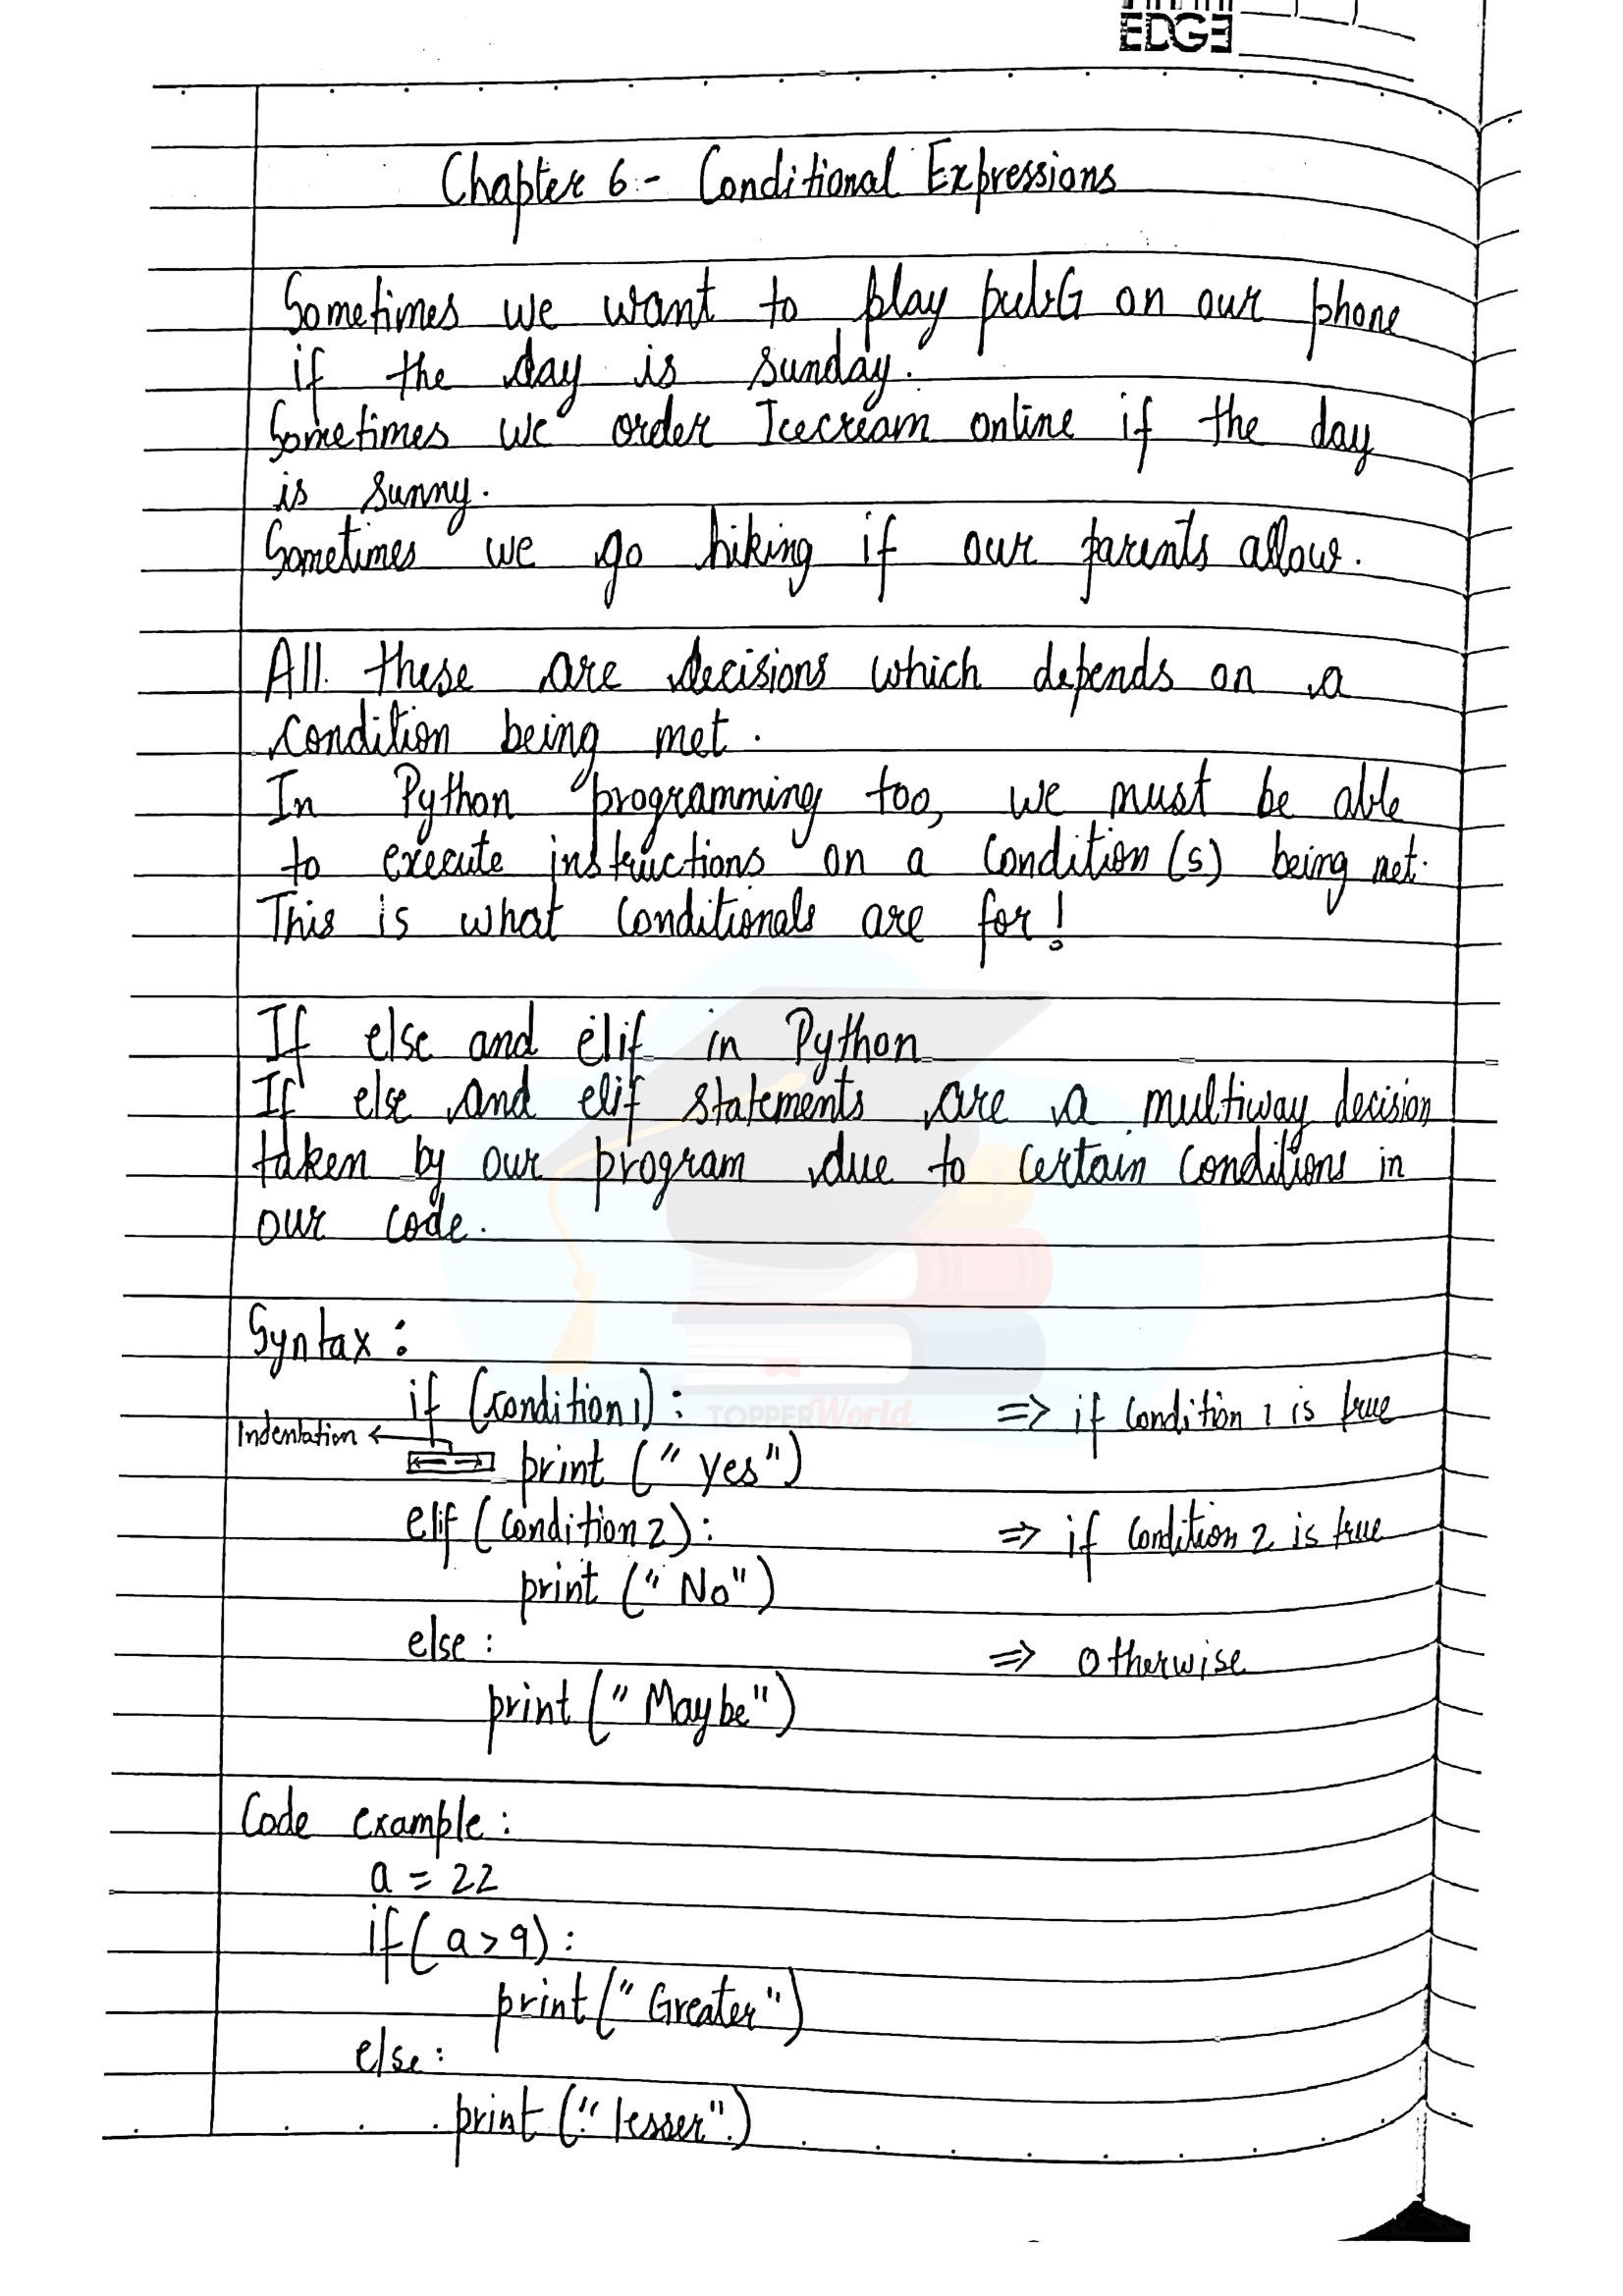 EDGE
Chapter 6:- Conditional Expressions
Sometimes we want to play pubG on our phone
if the day is sunday.
Sometimes we order Icecream online if the day
is sunny.
Sometimes we go hiking if our parents allow.
All these are decisions which depends on a
condition being met.
In Python programming too, we must be able
to execute instructions on a condition(s) being met.
This is what conditionals are for!
If else and elif in Python
If else and elif statements are a multiway decision
taken by our program due to certain conditions in
our code.
Syntax :
if (condition1) : => if condition 1 is true
Indentation
print (" yes")
elif (condition2) : => if condition 2 is true
print (" No")
else : => otherwise
print (" Maybe")
TOPPERWorld
Code example :
a = 22
if( a > 9) :
print (" Greater")
else :
print (" lesser")